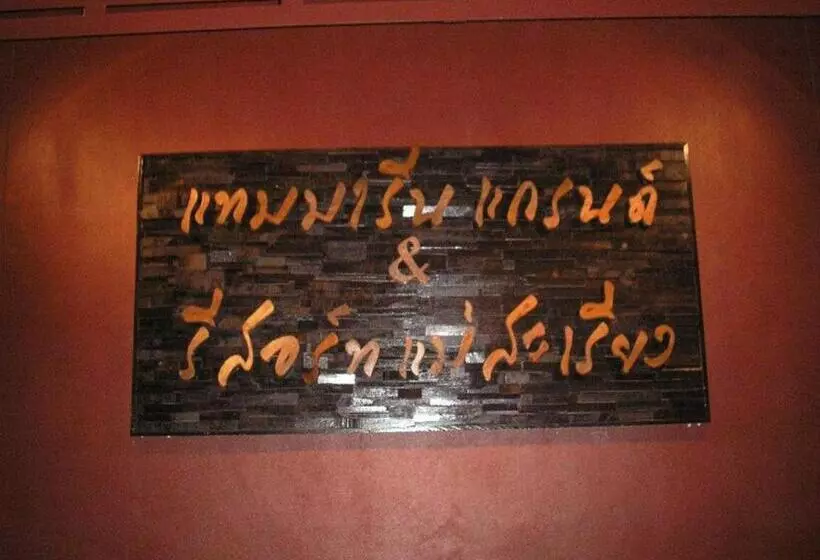 แทมมารีน แกรนด์
&
รีสอร์ท แม่สะเรียง